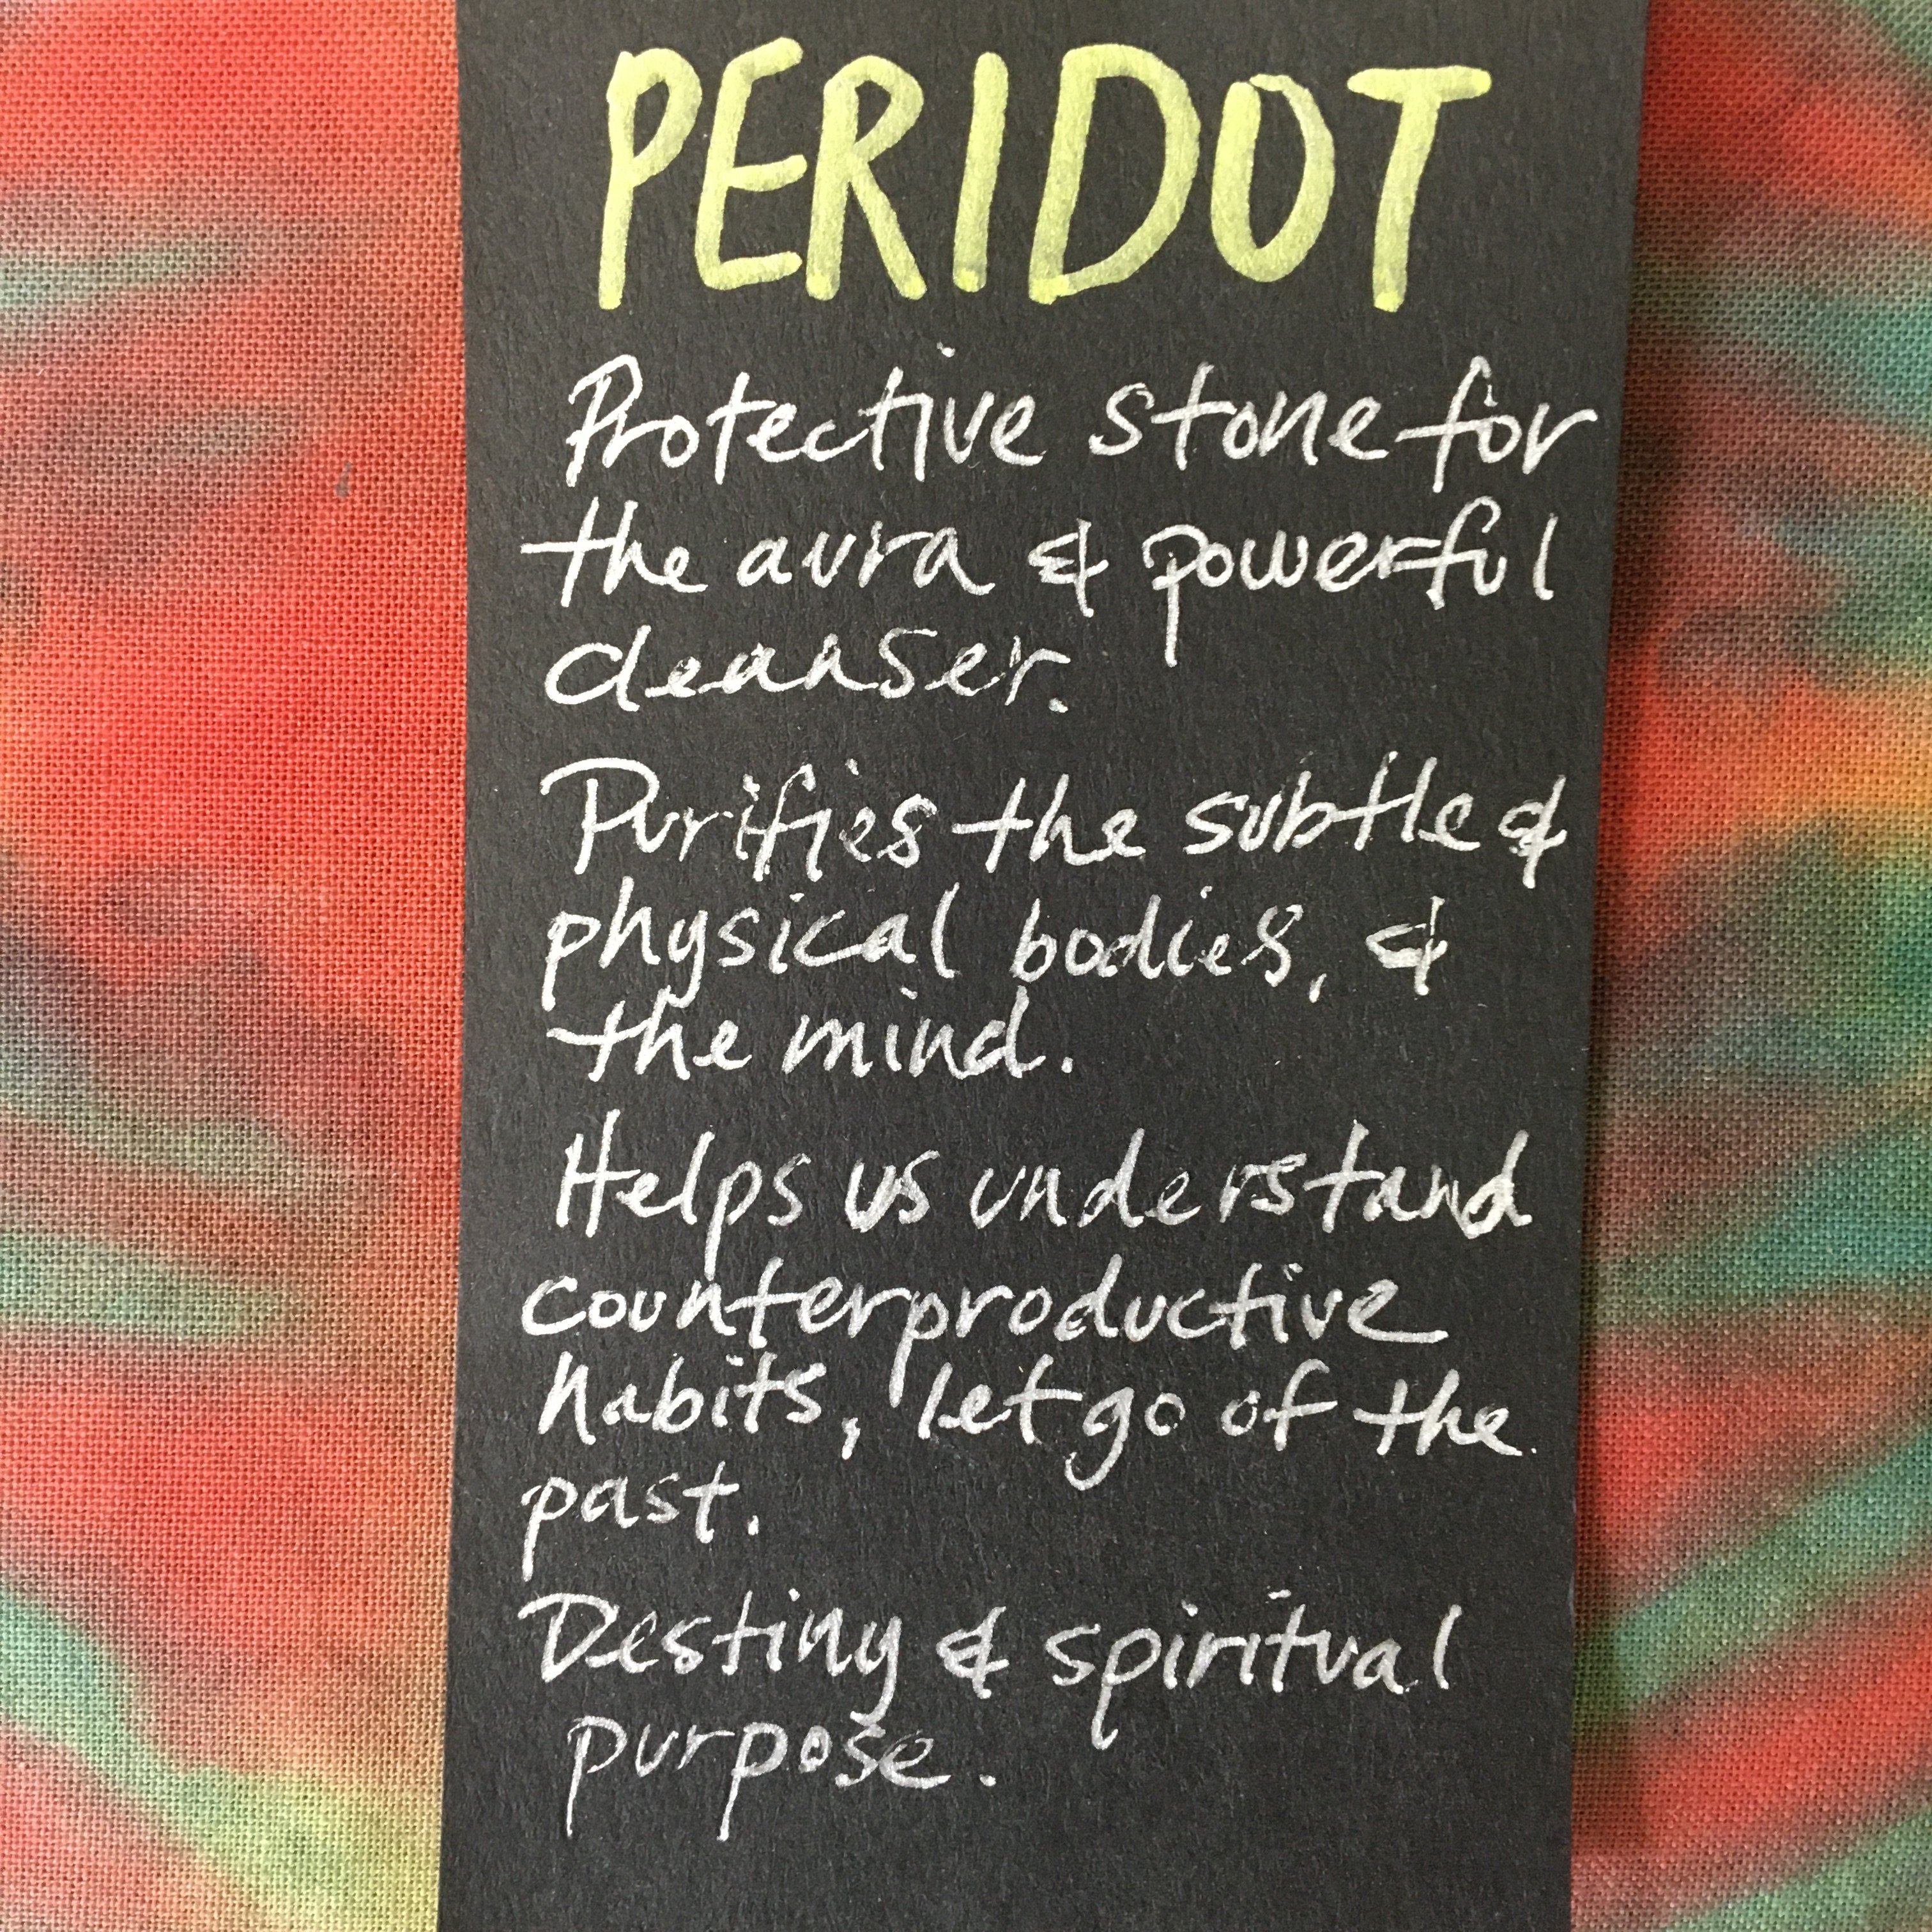 PERIDOT
Protective stone for
the aura & powerful
cleanser.
Purifies the subtle &
physical bodies, &
the mind.
Helps us understand
counterproductive
habits, let go of the
past.
Destiny & spiritual
purpose.